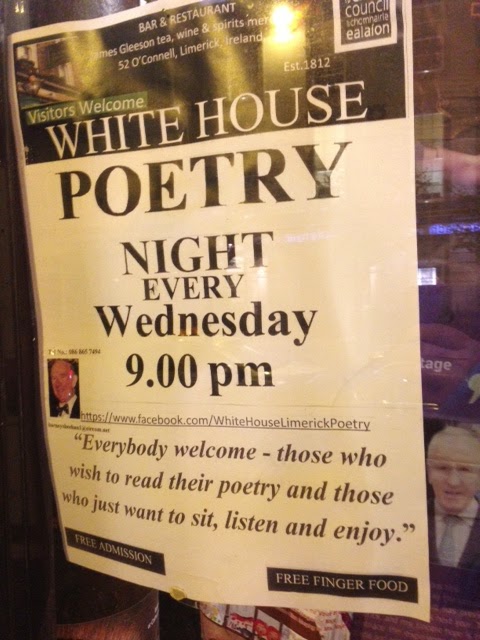 council
schomhairle
ealaíon
BAR & RESTAURANT
James Gleeson tea, wine & spirits
52 O'Connell, Limerick, Ireland
Est.1812
Visitors Welcome
WHITE HOUSE
POETRY
NIGHT
EVERY
Wednesday
9.00 pm
086 865 7494
https://www.facebook.com/WhiteHouseLimerickPoetry
“Everybody welcome - those who
wish to read their poetry and those
who just want to sit, listen and enjoy.”
FREE ADMISSION
FREE FINGER FOOD
tage